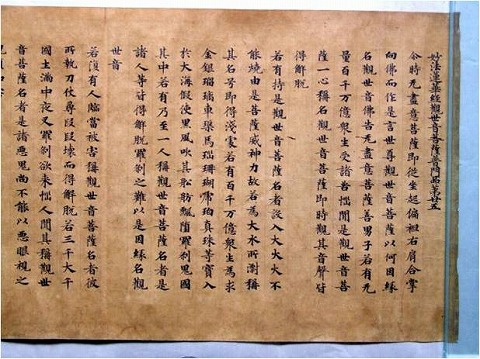 妙法蓮華經觀世音菩薩普門品第廿五
尒時无盡意菩薩即從坐起偏袒右肩合掌
向佛而作是言世尊觀世音菩薩以何因緣
名觀世音佛告无盡意菩薩善男子若有无
量百千万億衆生受諸苦惱聞是觀世音菩
薩一心稱名觀世音菩薩即時觀其音聲皆
得解脫
若有持是觀世音菩薩名者設入大火火不
能燒由是菩薩威神力故若為大水所漂稱
其名号即得淺處若有百千万億衆生為求
金銀瑠璃車𤦲馬瑙珊瑚虎珀真珠等寶入
於大海假使黑風吹其舩舫飄墮羅剎鬼國
其中若有乃至一人稱觀世音菩薩名者是
諸人等皆得解脫羅剎之難以是因緣名觀
世音
若復有人臨當被害稱觀世音菩薩名者彼
所執刀仗尋段段壞而得解脫若三千大千
國土滿中夜叉羅剎欲来惱人聞其稱觀世
音菩薩名者是諸惡鬼尚不能以惡眼視之